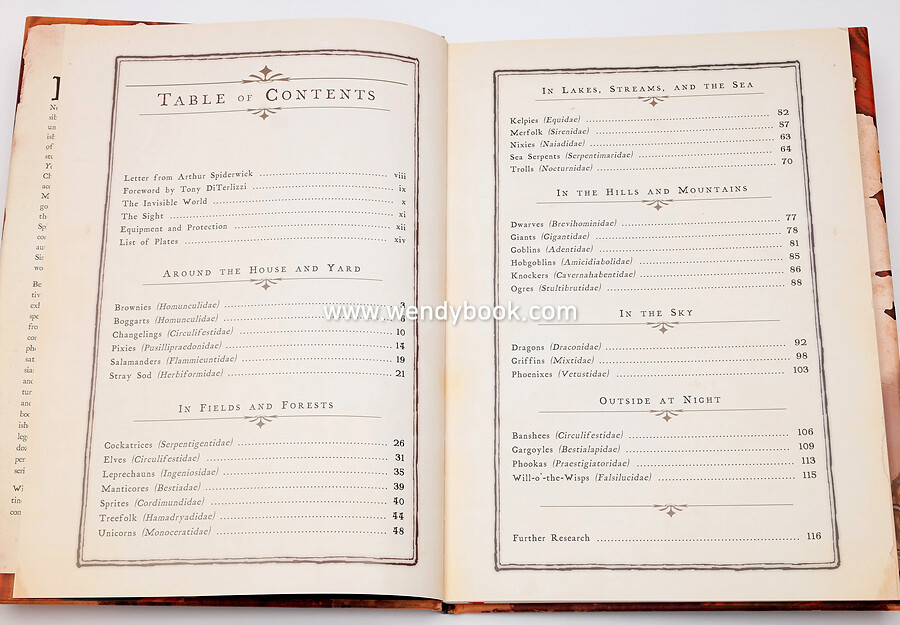 TABLE OF CONTENTS
Letter from Arthur Spiderwick viii
Foreword by Tony DiTerlizzi ix
The Invisible World x
The Sight xi
Equipment and Protection xii
List of Plates xiv
AROUND THE HOUSE AND YARD
Brownies (Homunculidae) 3
Boggarts (Homunculidae) 6
Changelings (Circulifestidae) 10
Pixies (Pusillipraedonidae) 14
Salamanders (Flammicuntidae) 19
Stray Sod (Herbiformidae) 21
IN FIELDS AND FORESTS
Cockatrices (Serpentigentidae) 26
Elves (Circulifestidae) 31
Leprechauns (Ingeniosidae) 35
Manticores (Bestiadae) 39
Sprites (Cordimundidae) 40
Treefolk (Hamadryadidae) 44
Unicorns (Monoceratidae) 48
IN LAKES, STREAMS, AND THE SEA
Kelpies (Equidae) 52
Merfolk (Sirenidae) 57
Nixies (Naiadidae) 63
Sea Serpents (Serpentimaridae) 64
Trolls (Nocturnidae) 70
IN THE HILLS AND MOUNTAINS
Dwarves (Brevihominidae) 77
Giants (Gigantidae) 78
Goblins (Adentidae) 81
Hobgoblins (Amicidiabolidae) 85
Knockers (Cavernahabentidae) 86
Ogres (Stultibrutidae) 88
IN THE SKY
Dragons (Draconidae) 92
Griffins (Mixtidae) 98
Phoenixes (Vetustidae) 103
OUTSIDE AT NIGHT
Banshees (Circulifestidae) 106
Gargoyles (Bestialapidae) 109
Phookas (Praestigiatoridae) 113
Will-o'-the-Wisps (Falsilucidae) 115
Further Research 116
www.wendybook.com